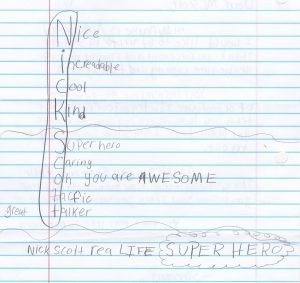 Nice
increadable
Cool
Kind
Super hero
Caring
Oh you are AWESOME
great talker
Nick Scott rea LIFE SUPER HERO